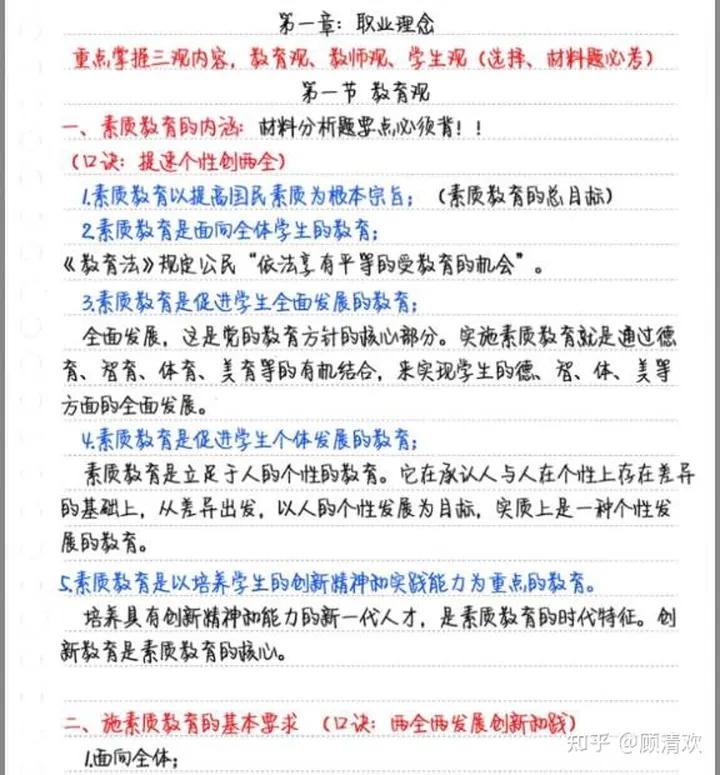 第一章：职业理念
重点掌握三观内容，教育观、教师观、学生观（选择、材料题必考）
第一节 教育观
一、素质教育的内涵：材料分析题要点必须背！！
（口诀：提速个性创两全）
1.素质教育以提高国民素质为根本宗旨；（素质教育的总目标）
2.素质教育是面向全体学生的教育；
《教育法》规定公民“依法享有平等的受教育的机会”。
3.素质教育是促进学生全面发展的教育；
全面发展，这是党的教育方针的核心部分。实施素质教育就是通过德
育、智育、体育、美育等的有机结合，来实现学生的德、智、体、美等
方面的全面发展。
4.素质教育是促进学生个体发展的教育；
素质教育是立足于人的个性的教育。它在承认人与人在个性上存在差异
的基础上，从差异出发，以人的个性发展为目标，实质上是一种个性发
展的教育。
5.素质教育是以培养学生的创新精神和实践能力为重点的教育。
培养具有创新精神和能力的新一代人才，是素质教育的时代特征。创
新教育是素质教育的核心。
二、施素质教育的基本要求（口诀：两全两发展创新和践）
1.面向全体；
知乎 @顾清欢